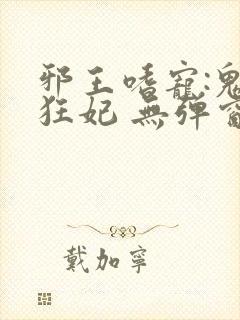 邪王嗜寵:鬼
狂妃 無彈窗
戴加寧